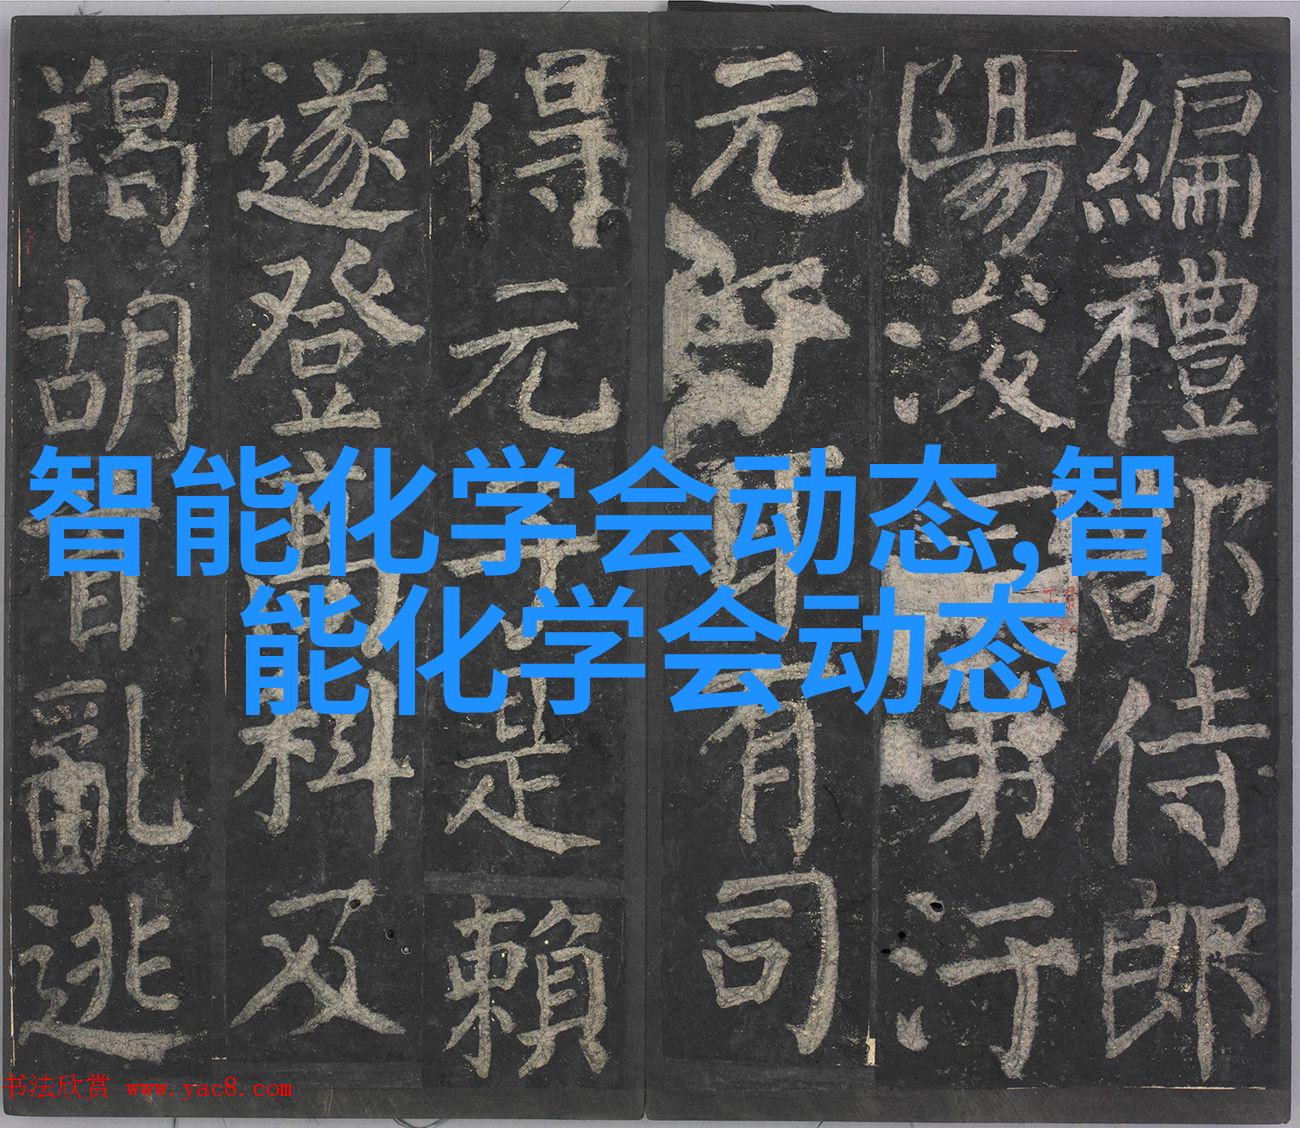 編禮部侍郎
陽浚第汙
元子耳有司
得元子是賴
遂登高科及
羯胡首亂逃
智能化学会动态,智
能化学会动态
书法欣赏 www.yac8.com